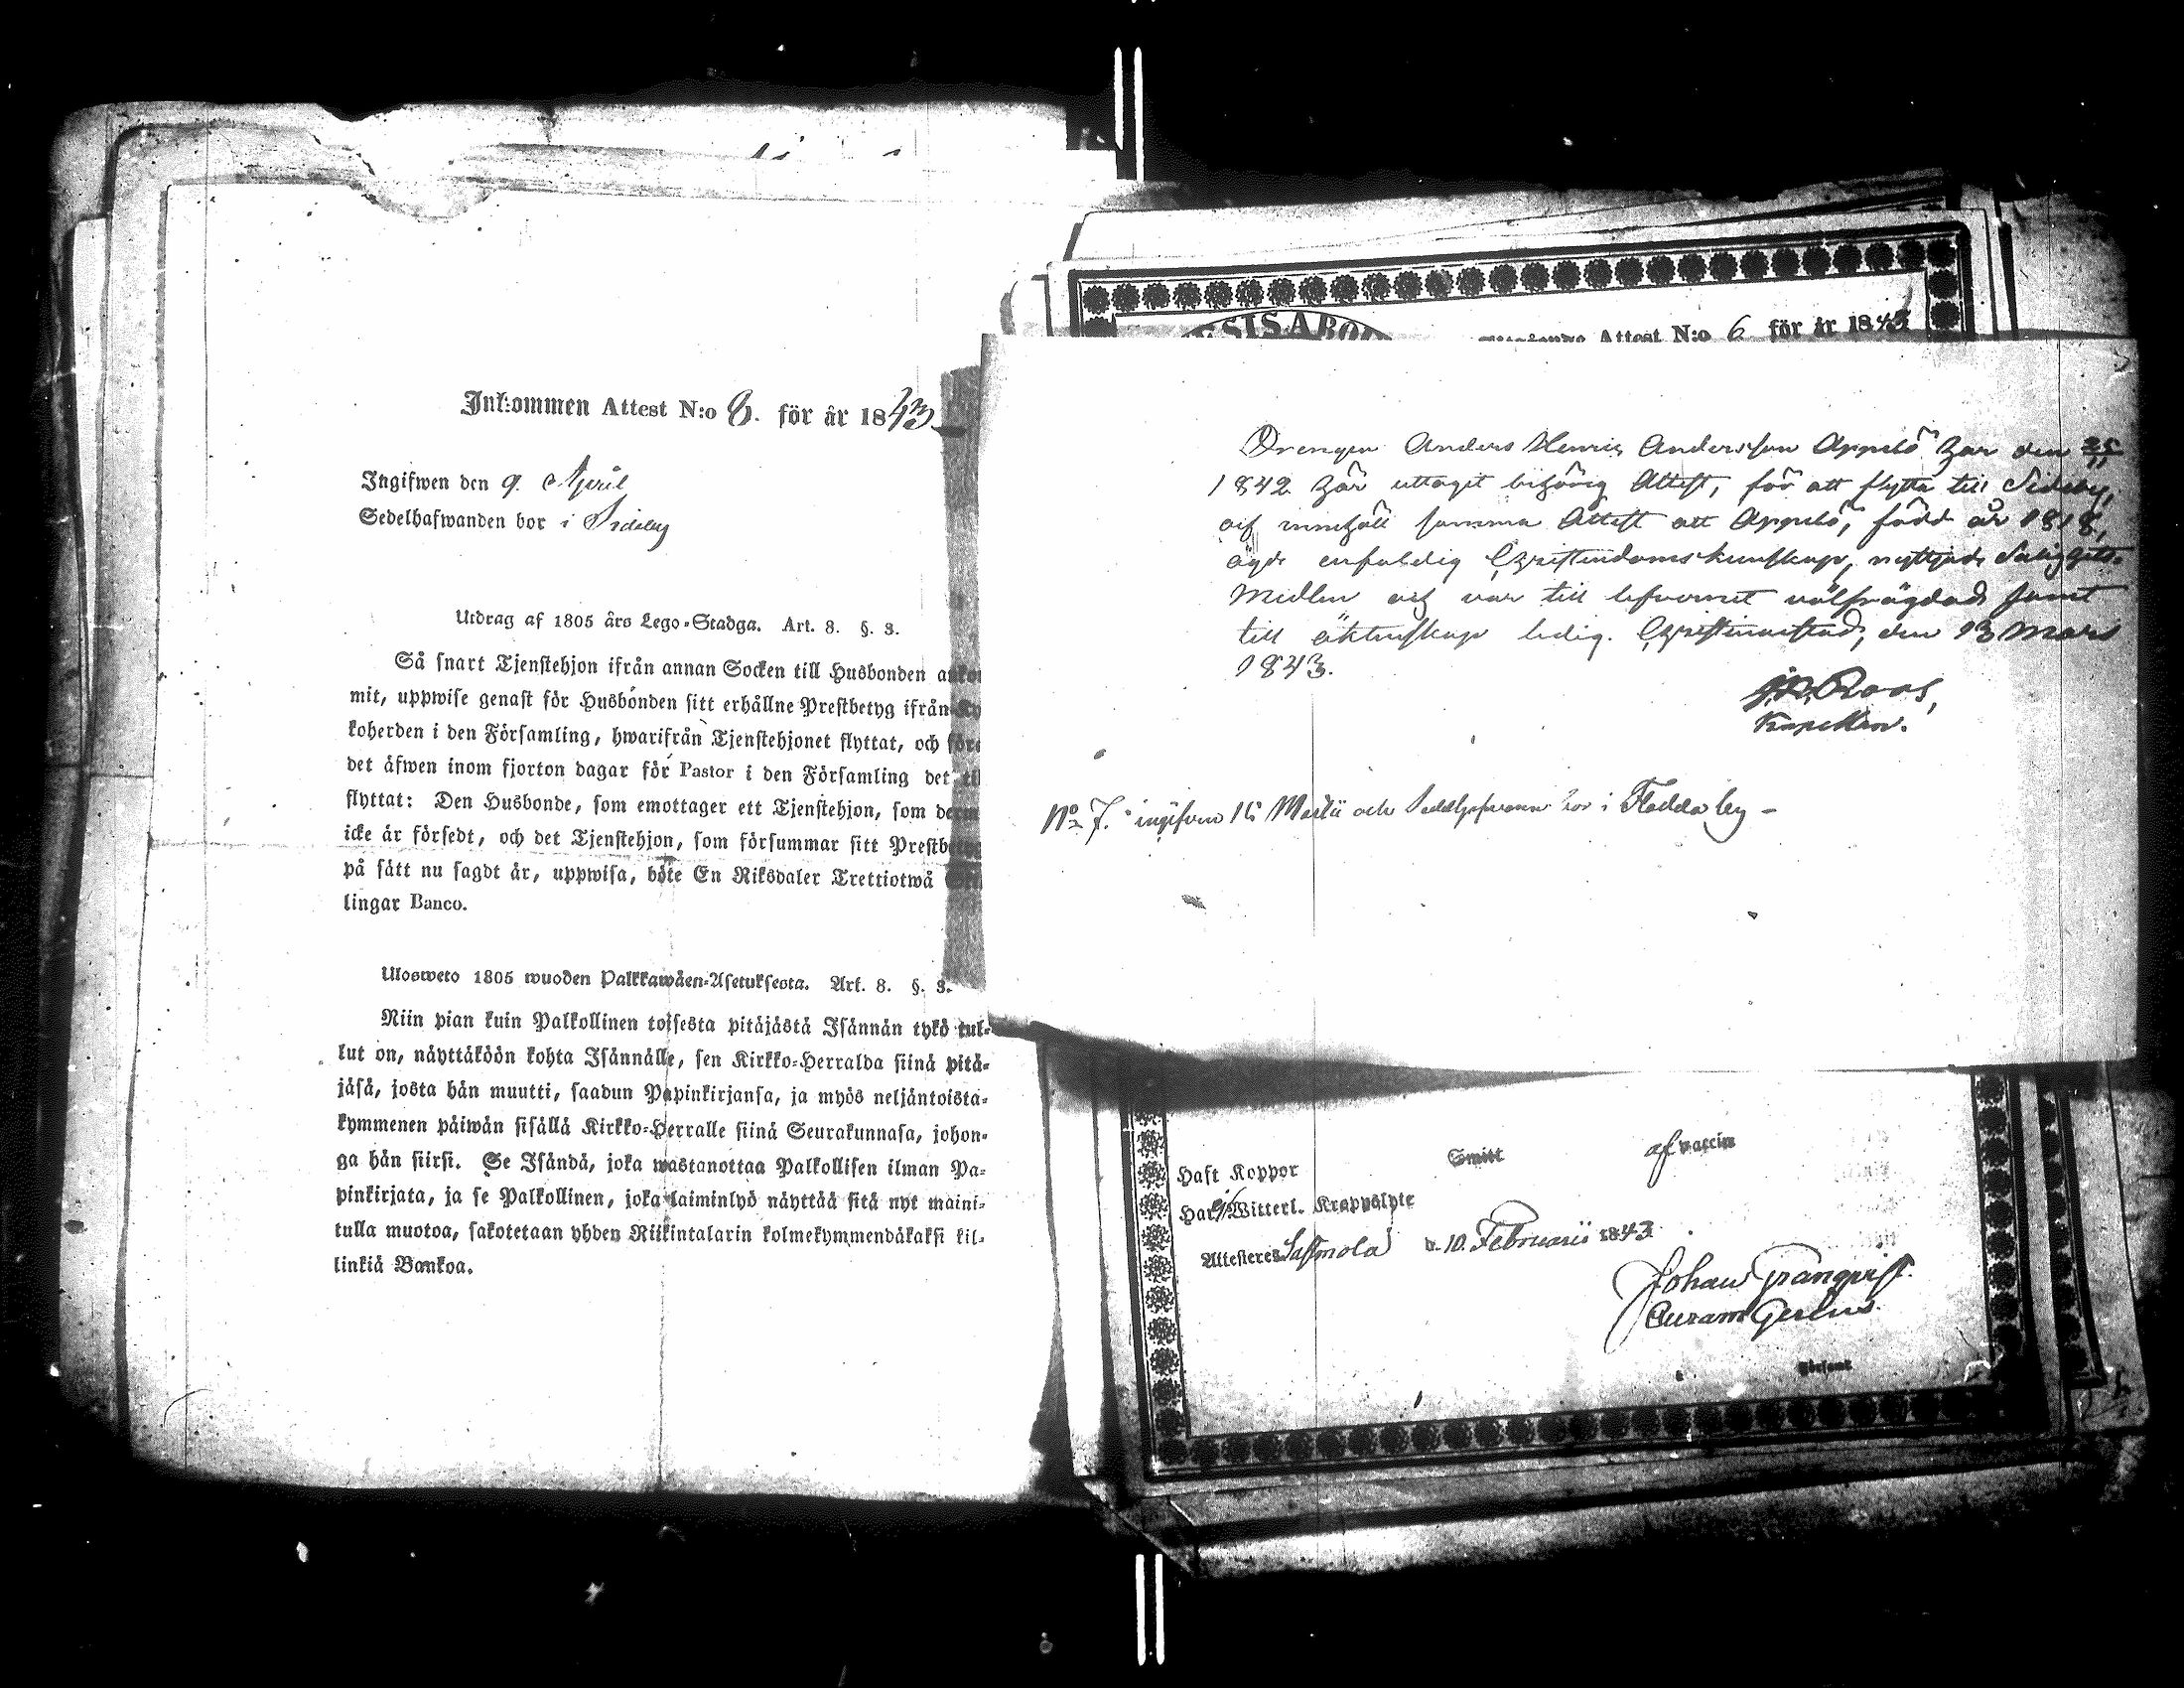 Inkommen Attest N:o 8. för år 1843
Ingifwen den 9. April
Sedelhafwanden bor i Sideby
Utdrag af 1805 års Lego-Stadga. Art. 8. §. 3.
Så snart Tjenstehjon ifrån annan Socken till Husbonden
mit, uppwise genast för Husbonden sitt erhållne Prestbetyg ifrån
koherden i den Församling, hwarifrån Tjenstehjonet flyttat, och
det äfwen inom fjorton dagar för Pastor i den Församling det
flyttat: Den Husbonde, som emottager ett Tjenstehjon, som
icke är försedt, och det Tjenstehjon, som försummar sitt
på sätt nu sagdt är, uppwisa, böte En Riksdaler Trettiotwå
lingar Banco.
Ulosweto 1805 wuoden Palkkawäen-Asetuksesta. Art. 8. §. 3.
Niin pian kuin Palkollinen toisesta pitäjästä Isännän tykö tul-
lut on, näyttäköön kohta Isännälle, sen Kirkko-Herralda siinä pitä-
jäsä, josta hän muutti, saadun Papinkirjansa, ja myös neljäntoista-
kymmenen päiwän sisällä Kirkko-Herralle siinä Seurakunnasa, johon-
ga hän siirsi. Se Isändä, joka wastanottaa Palkollisen ilman Pa-
pinkirjata, ja se Palkollinen, joka laiminlyö näyttää sitä nyt maini-
tulla muotoa, sakotetaan yhden Riikintalarin kolmekymmendäkaksi kil-
linkiä Bankoa.
Attest N:o 6 för år 1843
Drengen Anders Henric Andersson Appelö har den 25/11
1842 här uttagit behörig Attest, för att flytta till Sideby,
och innehöll samma Attest att Appelö, född år 1818,
ägde enfaldig Christendomskunskap, nyttjade Salighets-
Medlen och var till lefvernet välfrägdad samt
till äktenskap ledig. Christinestad, den 13 Mars
1843.
Roos,
Kapellan.
No 7. ingifven 15 Martii och bor i Fladda by –
Haft Koppor Smitt af vaccin
Har ej Witterl. Krappslyte
Attesteres Sastmola d. 10. Februarii 1843
Johan Granqvist.
Curam Gerens.